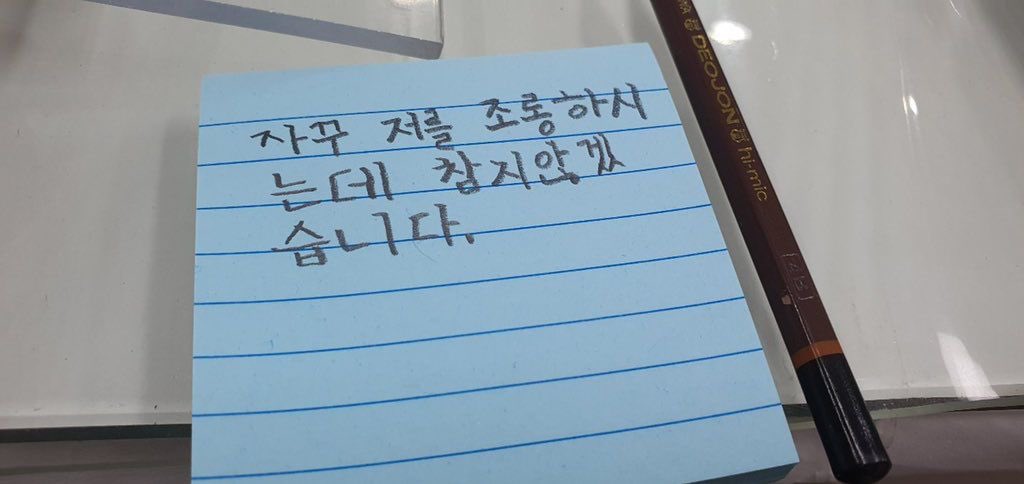 자꾸 저를 조롱하시
는데 참지않겠
습니다.
DEOJON hi-mic
4B